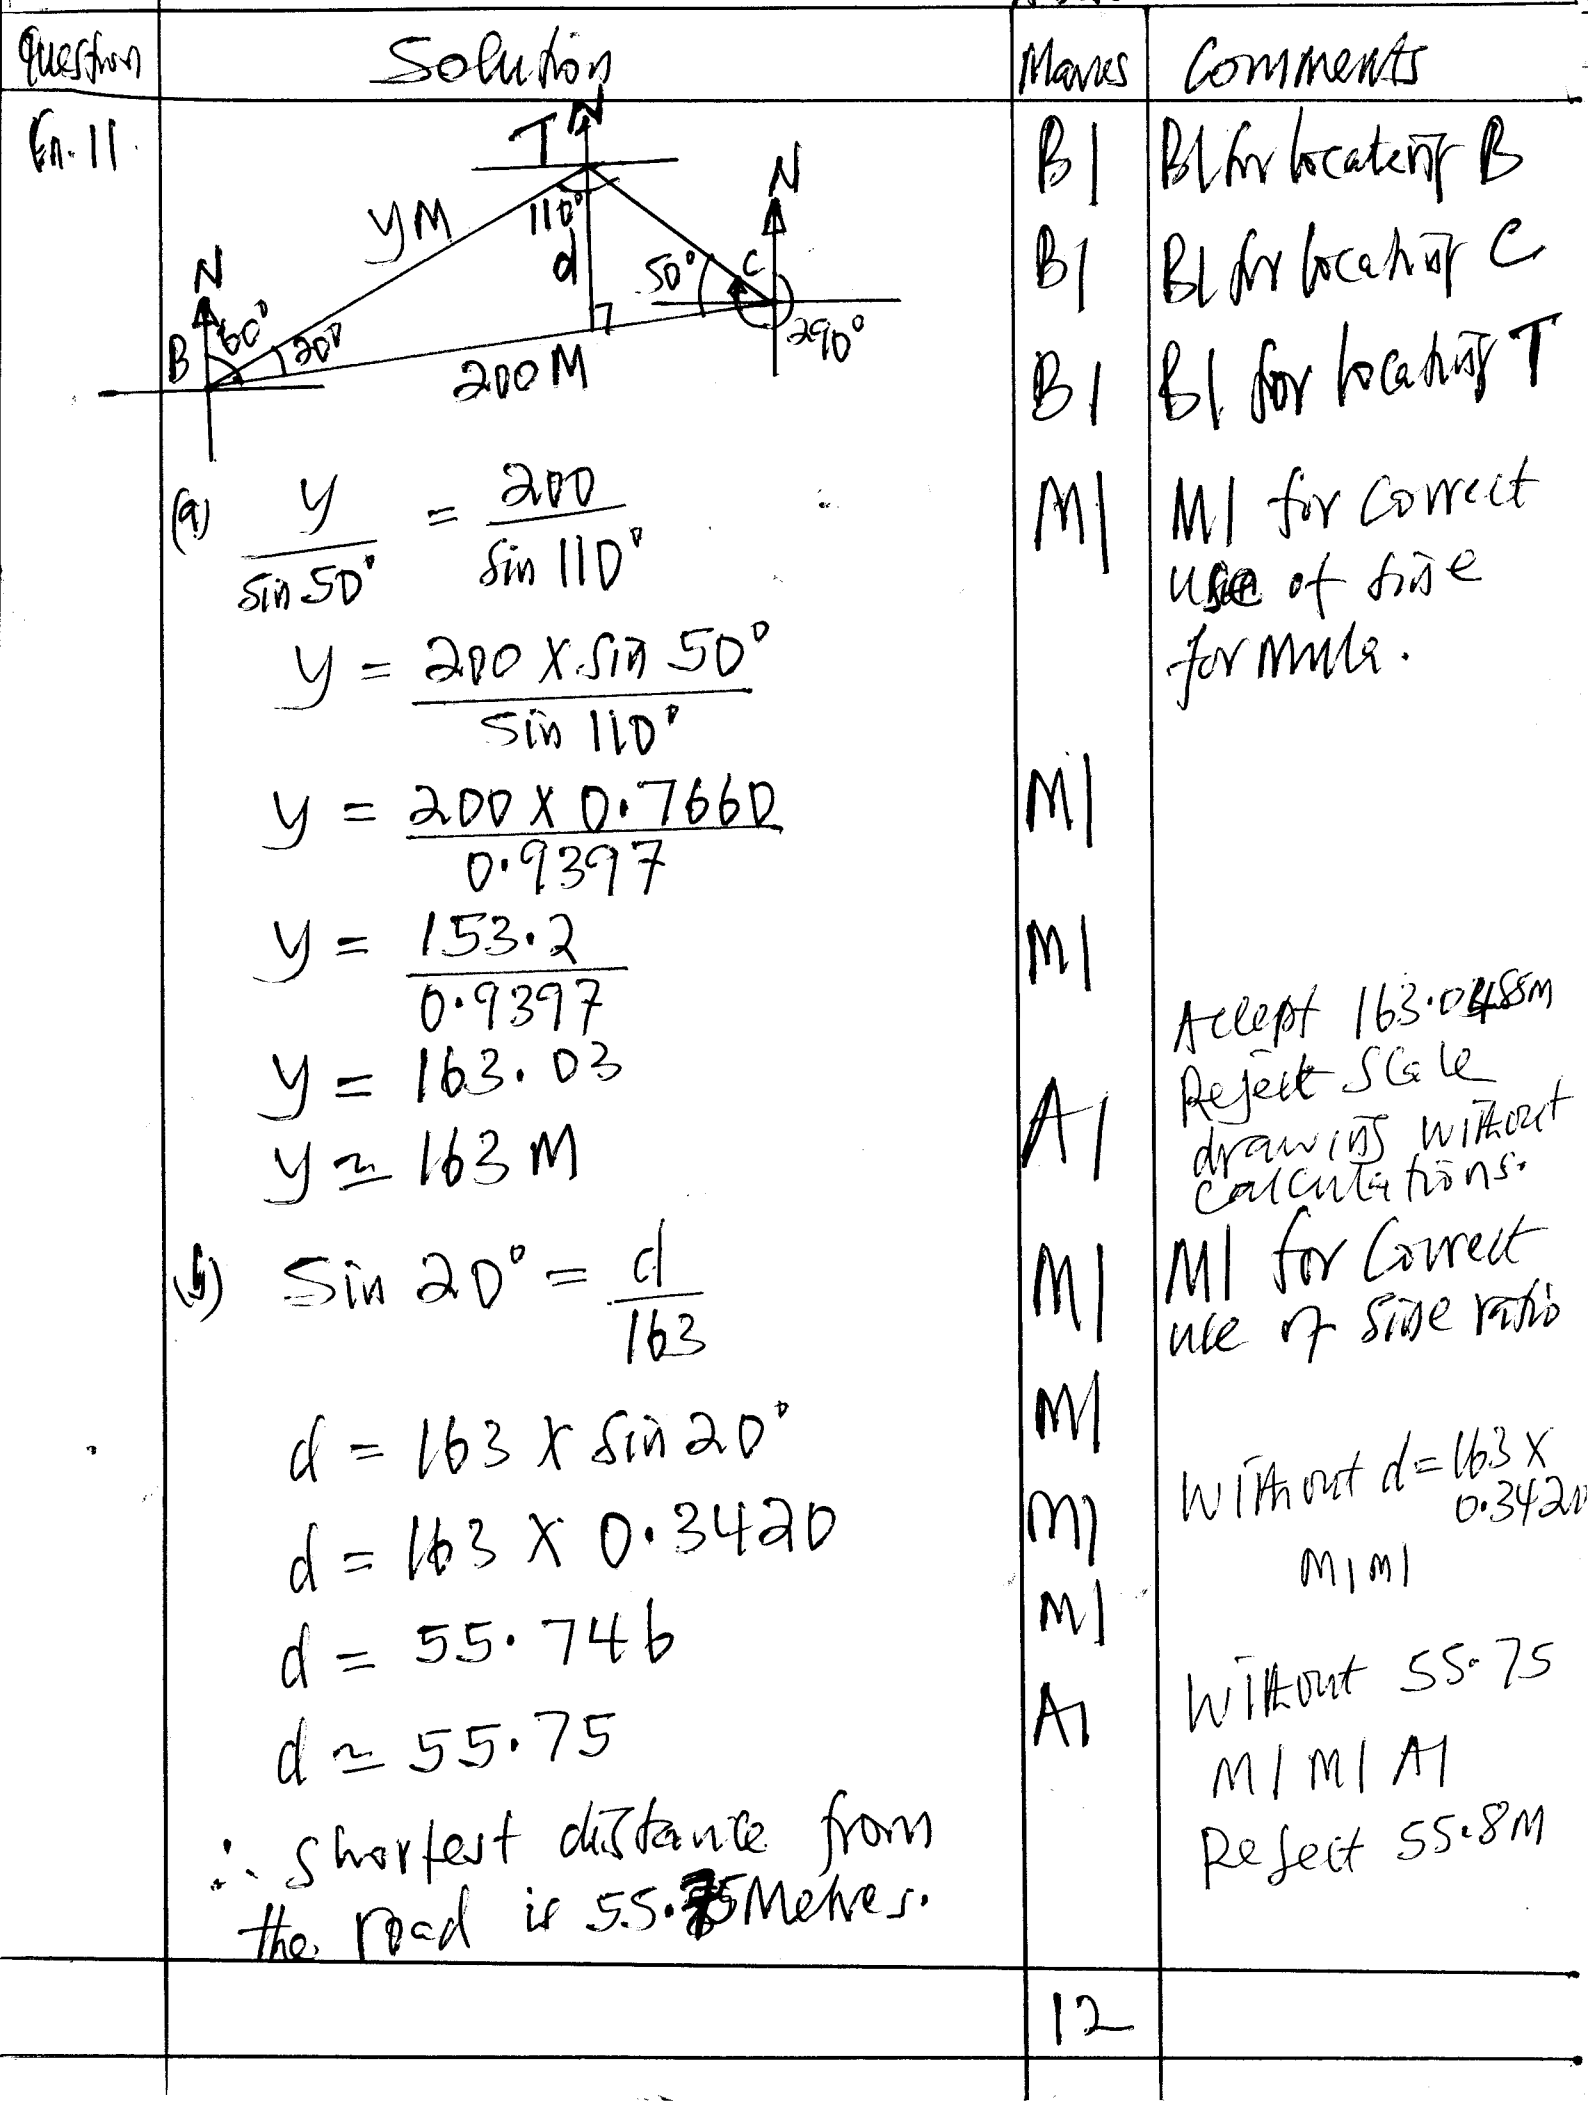 Question Solution Marks Comments
Qn. 11
T N
yM
110°
d
N
50°
C
290°
N
B
60°
20°
200M
B1 B1 for locating B
B1 B1 for locating C
B1 B1 for locating T
(a) y/sin 50° = 200/sin 110°
M1 M1 for correct
use of sine
formula.
y = 200 x sin 50°/sin 110°
y = 200 x 0.7660/0.9397 M1
y = 153.2/0.9397 M1
y = 163.03
y ≃ 163 M A1
Accept 163.0485M
Reject Scale
drawing without
calculations.
(b) Sin 20° = d/163 M1
M1 for Correct
use of sine ratio
d = 163 x sin 20° M1
d = 163 x 0.3420 M1
Without d = 163 x
0.3420
M1M1
d = 55.746 M1
d ≃ 55.75 A1
Without 55.75
M1 M1 A1
Reject 55.8M
∴ shortest distance from
the road is 55.75 Metres.
12